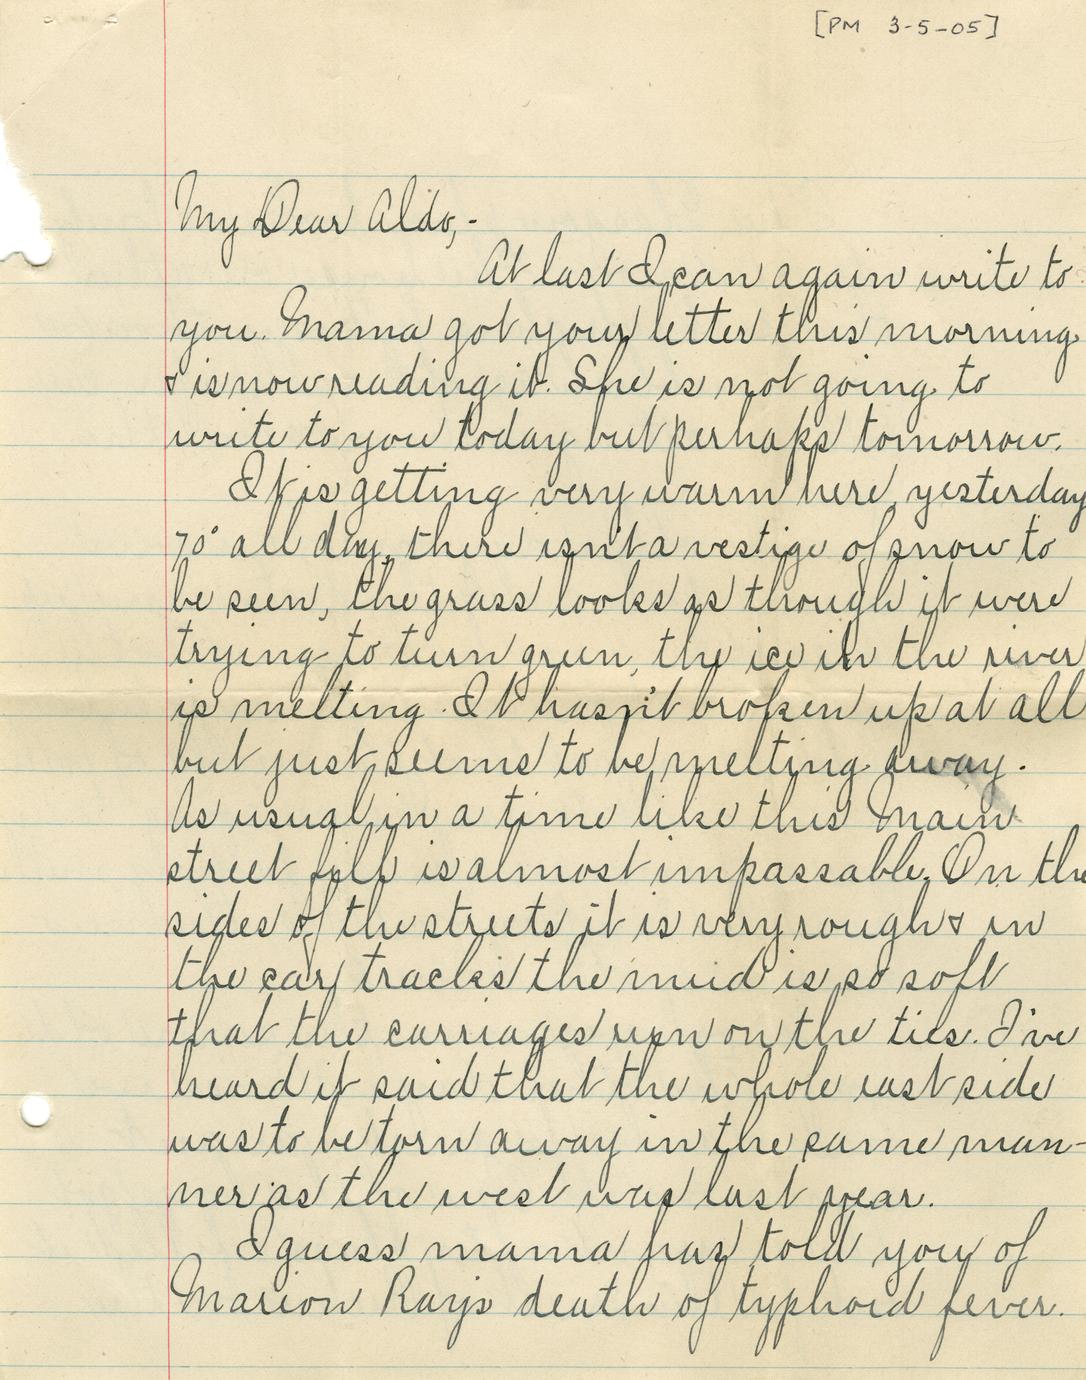 [PM 3-5-05]
My Dear Aldo,-
At last I can again write to
you. Mama got your letter this morning
& is now reading it. She is not going to
write to you today but perhaps tomorrow.
It is getting very warm here, yesterday
70° all day, there isn't a vestige of snow to
be seen, the grass looks as though it were
trying to turn green, the ice in the river
is melting. It hasn't broken up at all
but just seems to be melting away.
As usual in a time like this Main
street is almost impassable. On the
sides of the streets it is very rough & in
the car tracks the mud is so soft
that the carriages run on the ties. I've
heard it said that the whole east side
was to be torn away in the same man-
ner as the west was last year.
I guess mama has told you of
Marion Rays death of typhoid fever.